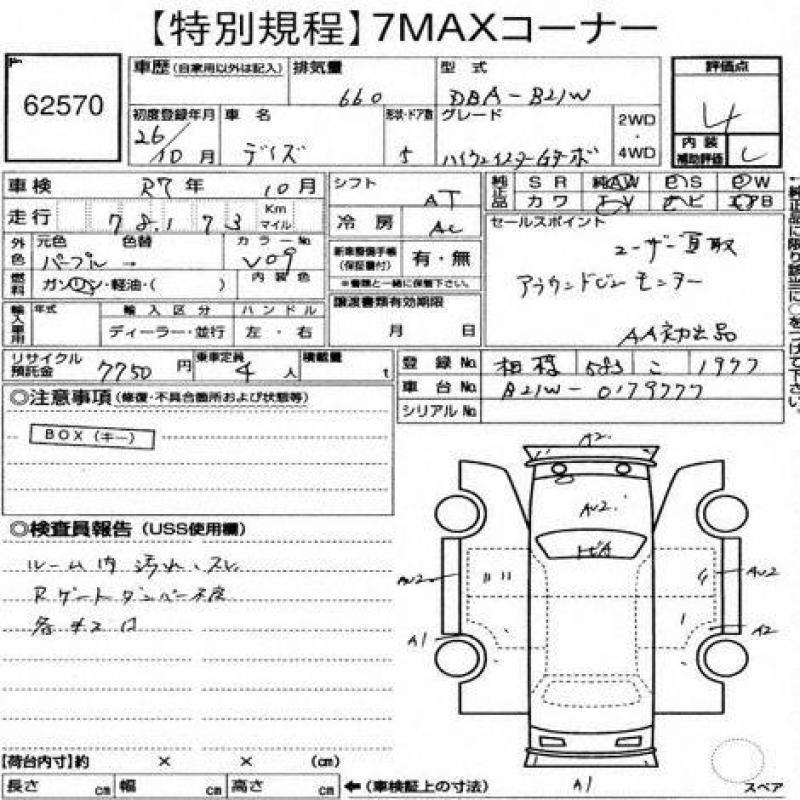 【特別規程】7MAXコーナー
62570
車歴 (自家用以外は記入) 排気量 型式 評価点
660 DBA-B21W 4
初度登録年月 車名 形状・ドア数 グレード 2WD・4WD
26/10月 デイズ 5 ハイウェイスターGターボ
内装補助評価 C
車検 R7年 10月 シフト AT
純正品 SR 純AW PS PW
カワ TV ナビ エアB
走行 78,173 Km マイル 冷房 AC
セールスポイント
外色 元色 色替 カラーNo. 新車整備手帳(保証書付) 有・無
パープル → V09 内装色
ユーザー買取
燃料 ガソリン・軽油・( ) ※書類と一緒に保管下さい。
アラウンドビューモニター
輸入車用 年式 輸入区分 ハンドル 譲渡書類有効期限
ディーラー・並行 左・右 月 日
AA初出品
リサイクル預託金 7750円 乗車定員 4人 積載量 t
登録No. 相模 583 こ 1977
車台No. B21W-0179777
シリアルNo.
◎注意事項 (修復・不具合箇所および状態等)
BOX (キー)
◎検査員報告 (USS使用欄)
ルーム内 汚れ、スレ
Rゲートダンパー不良
各キズ凹
A2
AU2
トビA
AU2
AU2
A1
A2
A1
【荷台内寸】約 × × (cm)
長さ cm 幅 cm 高さ cm ←(車検証上の寸法)
スペア
↑純正品に限り該当に○をつけて下さい。